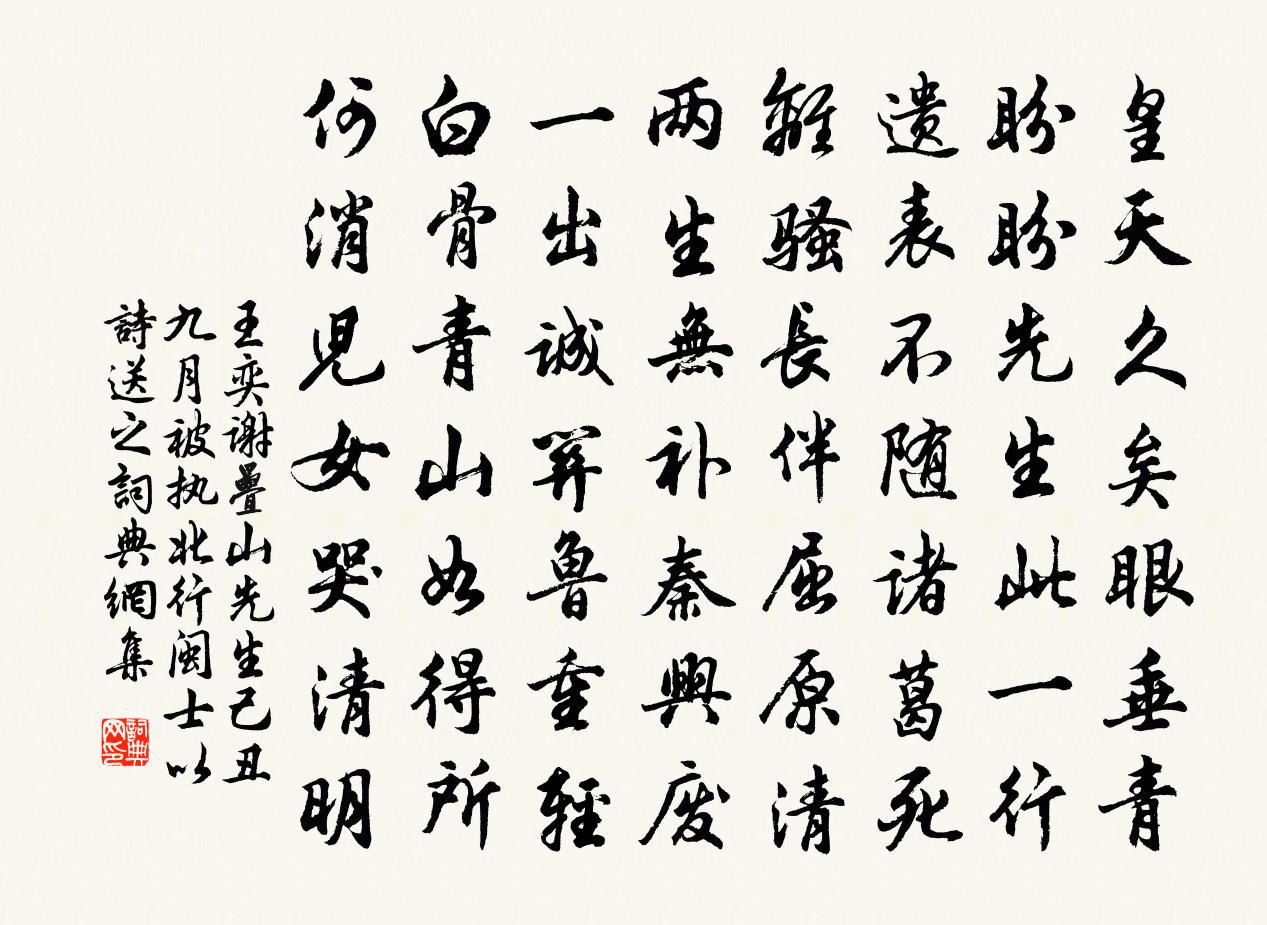 皇天久矣眼垂青
盼盼先生此一行
遗表不随诸葛死
離骚長伴屈原清
两生無补秦興废
一出誠関魯重輕
白骨青山如得所
何消児女哭清明
王奕谢疊山先生己丑
九月被执北行闽士以
詩送之詞典網集
詞典网印